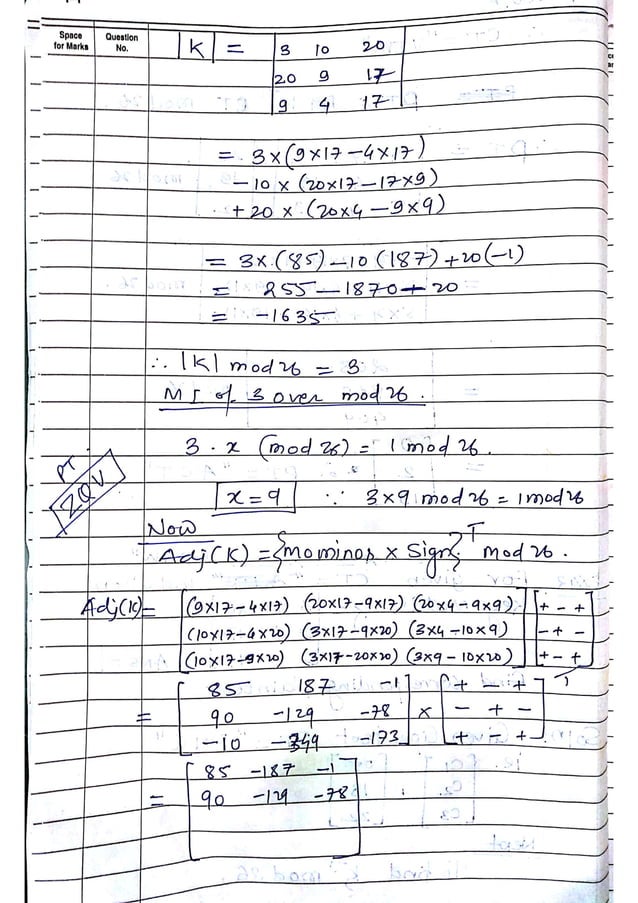 Space for Marks
Question No.
|K| = | 3 10 20 |
| 20 9 17 |
| 9 4 17 |
= 3×(9×17-4×17)
-10 × (20×17-17×9)
+20 × (20×4-9×9)
= 3×.(85)-10(187)+20(-1)
= 255-1870+20
= -1635
∴ |K| mod 26 = 3
MI of 3 over mod 26.
3 · x (mod 26) = 1 mod 26.
PT
ZQV
x=9 ∵ 3×9 mod 26 = 1 mod 26
Now
Adj(K) = {Mominor × Sign}^T mod 26.
Adj(K)= [ (9×17-4×17) (20×17-9×17) (20×4-9×9) ] [ + - + ]
(10×17-4×20) (3×17-9×20) (3×4-10×9) - + -
(10×17-9×20) (3×17-20×20) (3×9-10×20) + - + T
= [ 85 187 -1 ] × [ + - + ] T
90 -129 -78 - + -
-10 -349 -173 + - +
= [ 85 -187 -1 ]
90 -129 -78